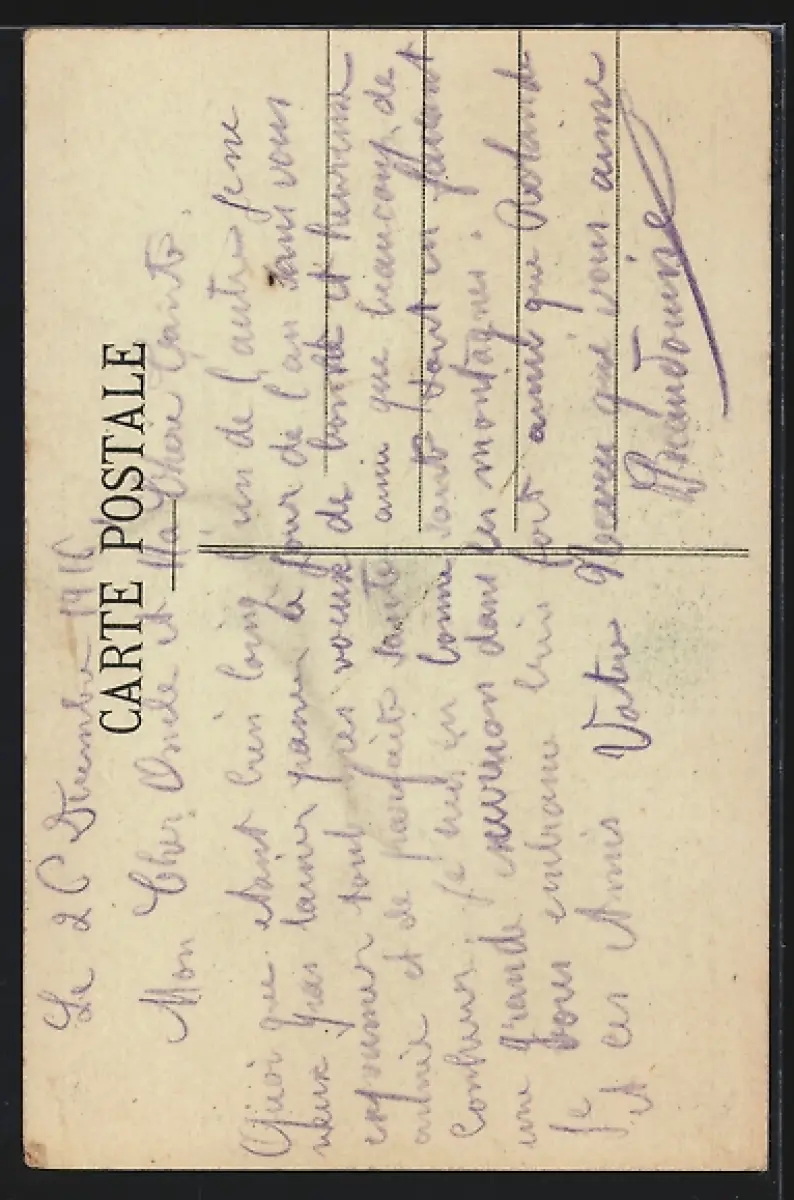 CARTE POSTALE
Le 26 Décembre 1916
Mon Cher Oncle et Ma Chère Tante.
Quoi que étant bien loing l'un de l'autre je ne
veux pas laisser passer le jour de l'an sans vous
exprimer tout mes voeux de bonne et heureuse
année et de parfaite santé ainsi que beaucoup de
bonheur, je suis en bonne santé tout en faisant
une grande dans les montagnes.
Je vous embrasse bien fort ainsi que
et ces Amis Votre Neveu qui vous aime